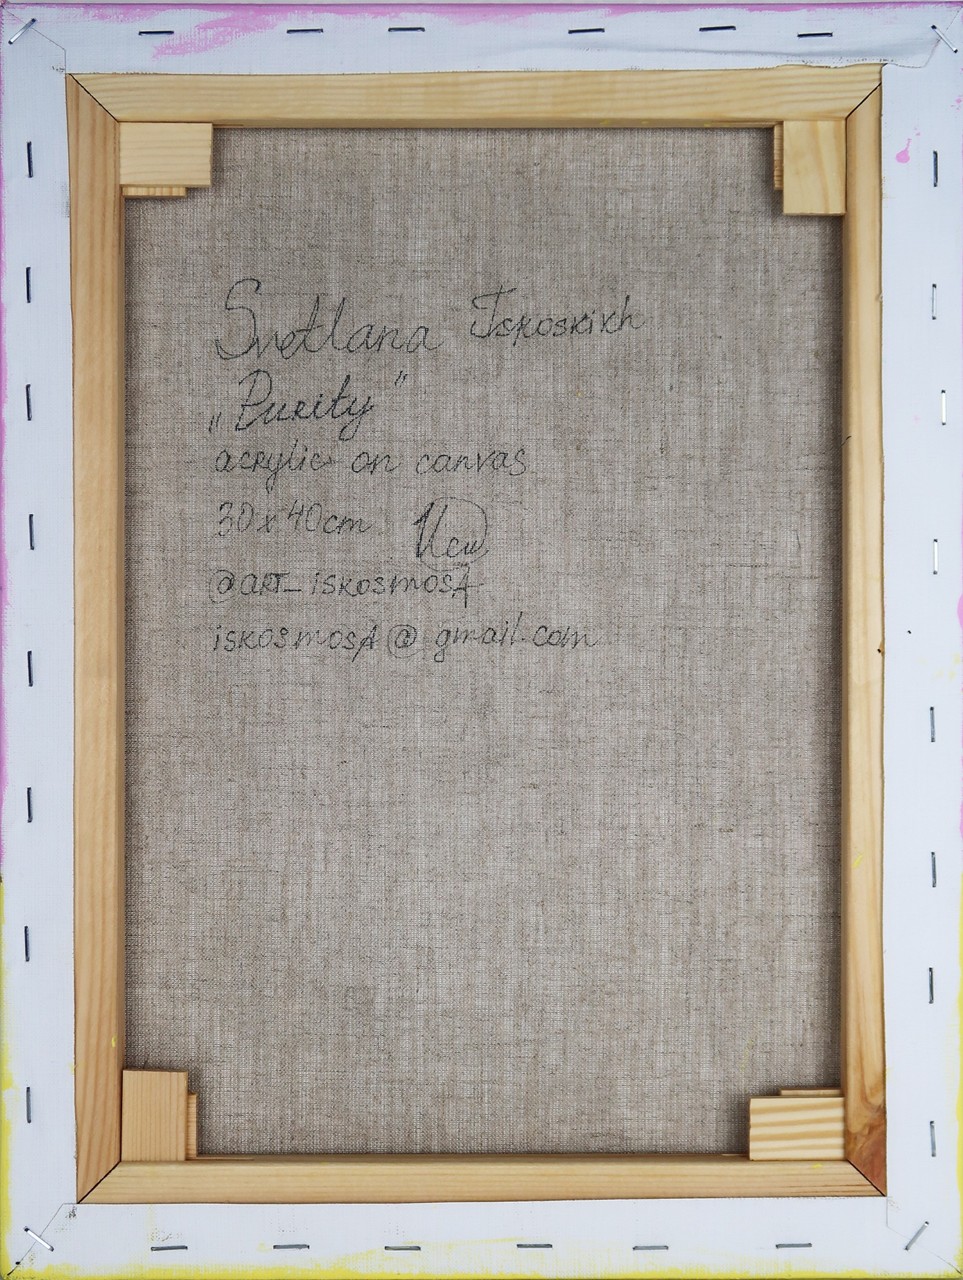 Svetlana Iskoskikh
„Purity”
acrylic on canvas
30x40cm Иси
@ART_iskosmosA
iskosmosA@gmail.com